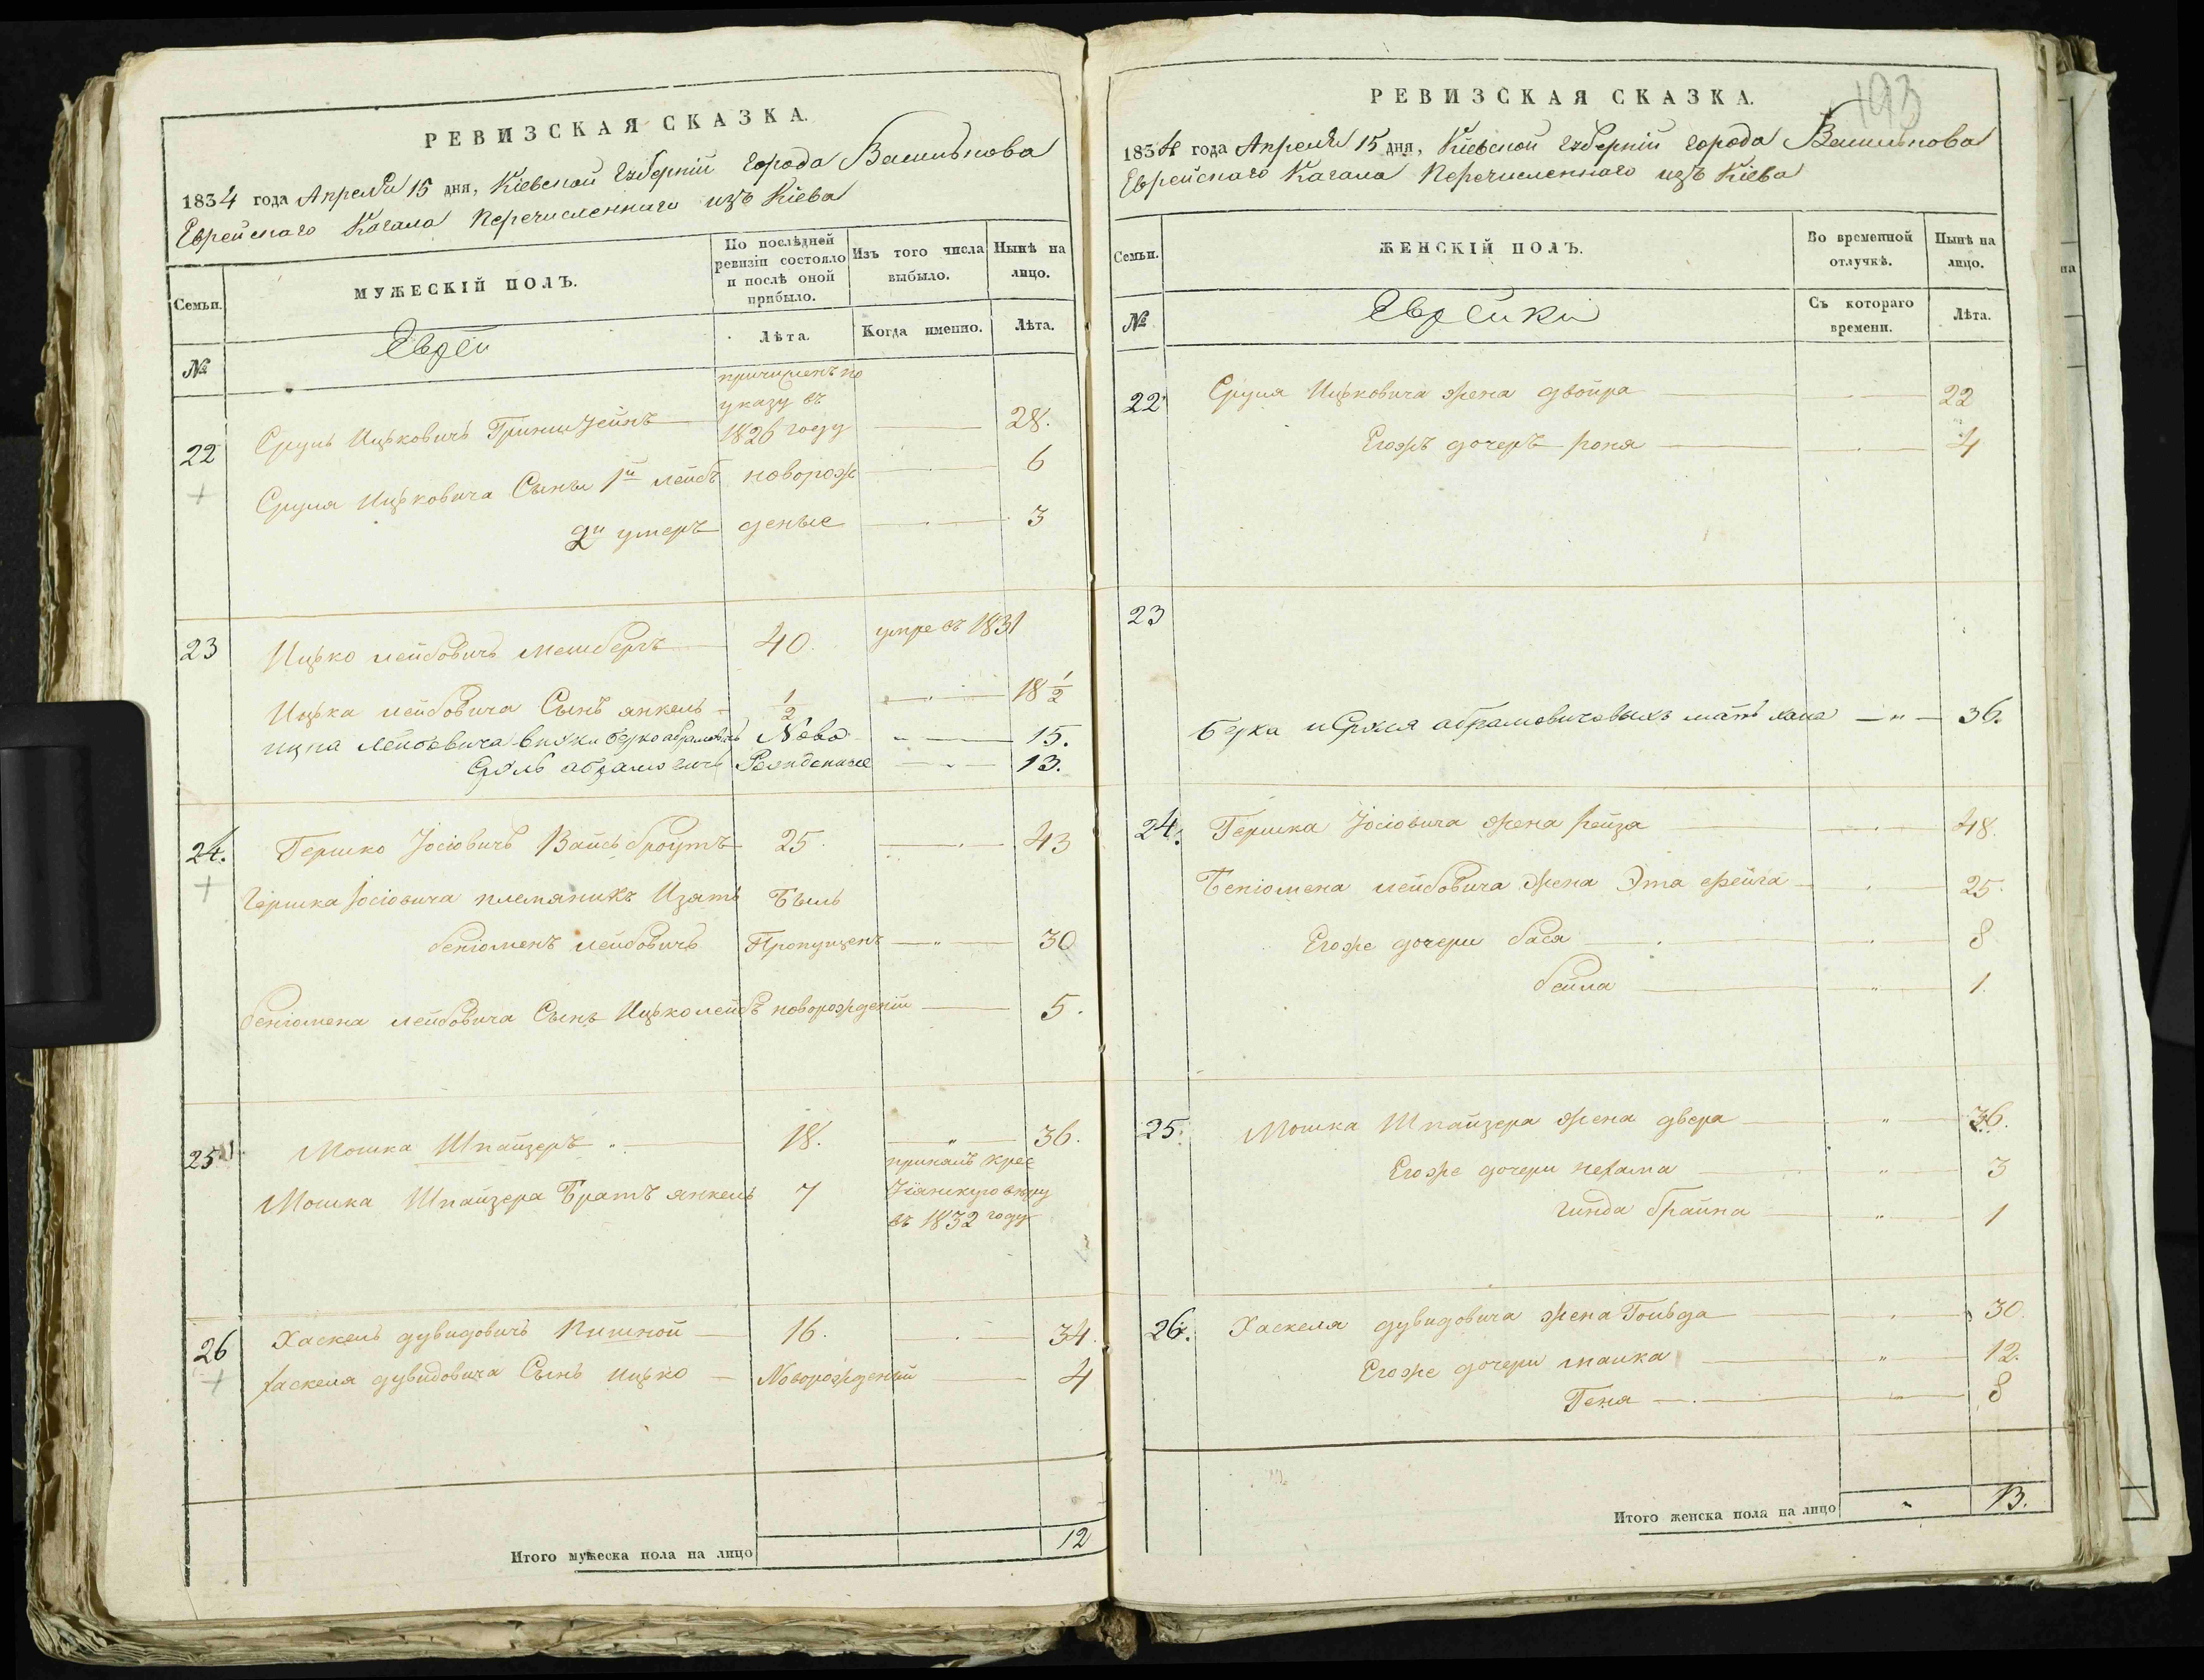 РЕВИЗСКАЯ СКАЗКА.
1834 года Апреля 15 дня, Кіевской Губерніи города Василькова
Еврейскаго Кагала Перечисленнаго изъ Кіева
Семьи.
МУЖЕСКІЙ ПОЛЪ.
По послѣдней ревизіи состояло и послѣ оной прибыло.
Изъ того числа выбыло.
Нынѣ на лицо.
№
Евреи
Лѣта.
Когда именно.
Лѣта.
причисленъ по
указу въ
22 Сруль Ицковичъ 1826 году 28.
Сруля Ицковича Сыны 1й лейбъ новорож 6
2й умеръ деные 3
23 Ицько лейбовичъ 40. умре въ 1831
Ицька лейбовича Сынъ янкель 1/2 18 1/2
ицка Лейбовича внуки берко абрамовичъ Ново 15.
Сруль абрамовичъ Рожденные 13.
24. Гершко Іосіовичъ Вайсброутъ 25. 43
Гершка Іосіовича племяникъ Изять Былъ
беніоменъ лейбовичъ Пропущенъ 30
беніомена лейбовича Сынъ Ицьколейбъ новорожденій 5.
25 Мошка Шпайзеръ 18. 36.
принялъ хрес
Мошка Шпайзера Братъ янкель 7 тіянскую веру
въ 1832 году
26 Хаскель дувидовичъ 16. 34.
Хаскеля дувидовича Сынъ ицко Новорожденый 4
Итого мужеска пола на лицо 12
193
РЕВИЗСКАЯ СКАЗКА.
1834 года Апреля 15 дня, Кіевской Губерніи города Василькова
Еврейскаго Кагала Перечисленнаго изъ Кіева
Семьи.
ЖЕНСКІЙ ПОЛЪ.
Во временной отлучкѣ.
Нынѣ на лицо.
№
Еврейки
Съ котораго времени.
Лѣта.
22 Сруля Ицковича жена двойра 22
Егожъ дочеръ роня 4
23
Берка и Сруля абрамовичовыхъ мать хана 36.
24. Гершка Іосіовича жена рейза 48.
Беніомена лейбовича жена Эта фейга 25.
Егоже дочери бася 8
бейла 1.
25. Мошка Шпайзера жена двера 36.
Егоже дочери нехама 3
гинда брайна 1
26. Хаскеля дувидовича жена Гольда 30
Егоже дочери малка 12.
Геня 8
Итого женска пола на лицо 13.